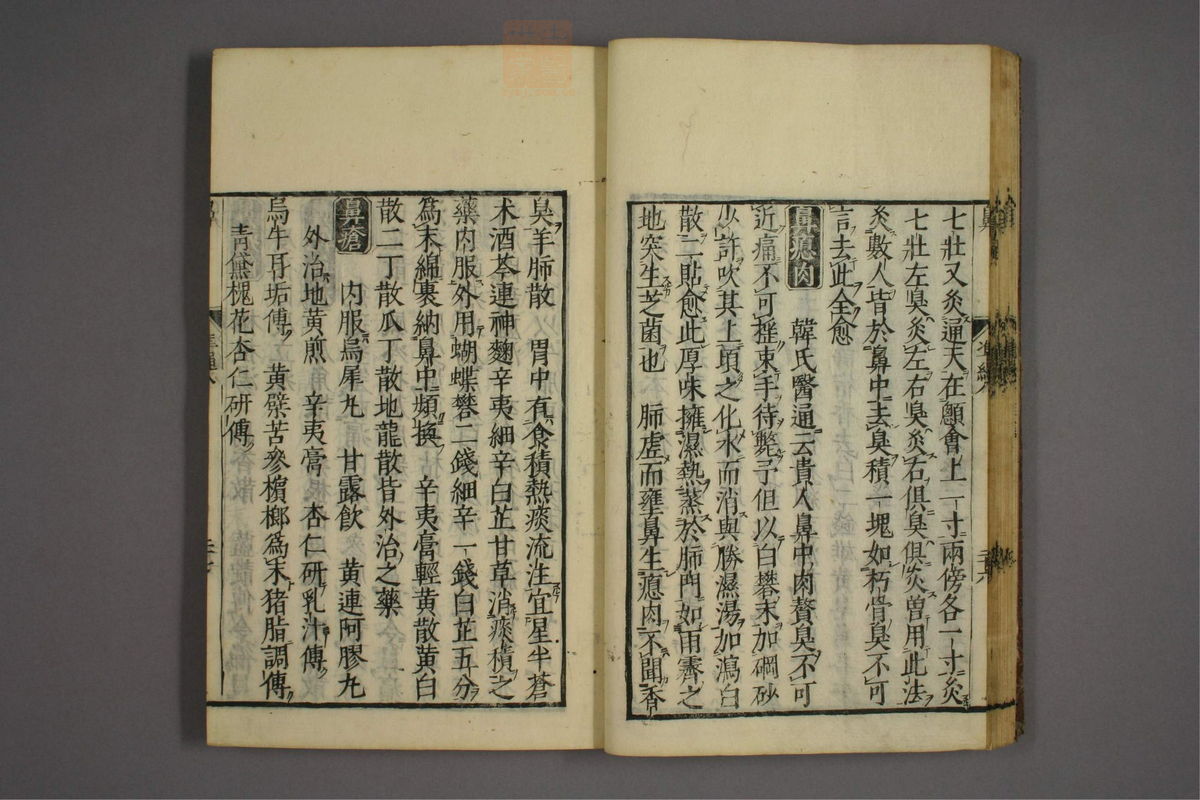 七壯又灸通天在顖會上一寸兩傍各一寸灸
七壯左臭灸左右臭灸右俱臭俱灸曽用此法
灸數人皆於鼻中去臭積一塊如朽骨臭不可
言去此全愈
鼻瘜肉　韓氏醫通云貴人鼻中肉贅臭不可
近痛不可揺束手待斃予但以白礬末加硇砂
少許吹其上頃之化水而消與勝濕湯加瀉白
散二貼愈此厚味擁濕熱蒸於肺門如雨霽之
地突生芝菌也　肺虚而壅鼻生瘜肉不聞香
臭羊肺散　胃中有食積熱痰流注宜星半蒼
术酒芩連神麴辛夷細辛白芷甘草消痰積之
藥内服外用蝴蝶礬二錢細辛一錢白芷五分
爲末綿裹納鼻中頻換　辛夷膏輕黄散黄白
散二丁散瓜丁散地龍散皆外治之藥
鼻瘡　内服烏犀丸　甘露飲　黄連阿膠丸
外治地黄煎　辛夷膏　杏仁研乳汁傅
烏牛耳垢傅　黄檗苦參檳榔爲末猪脂調傅
青黛槐花杏仁研傅